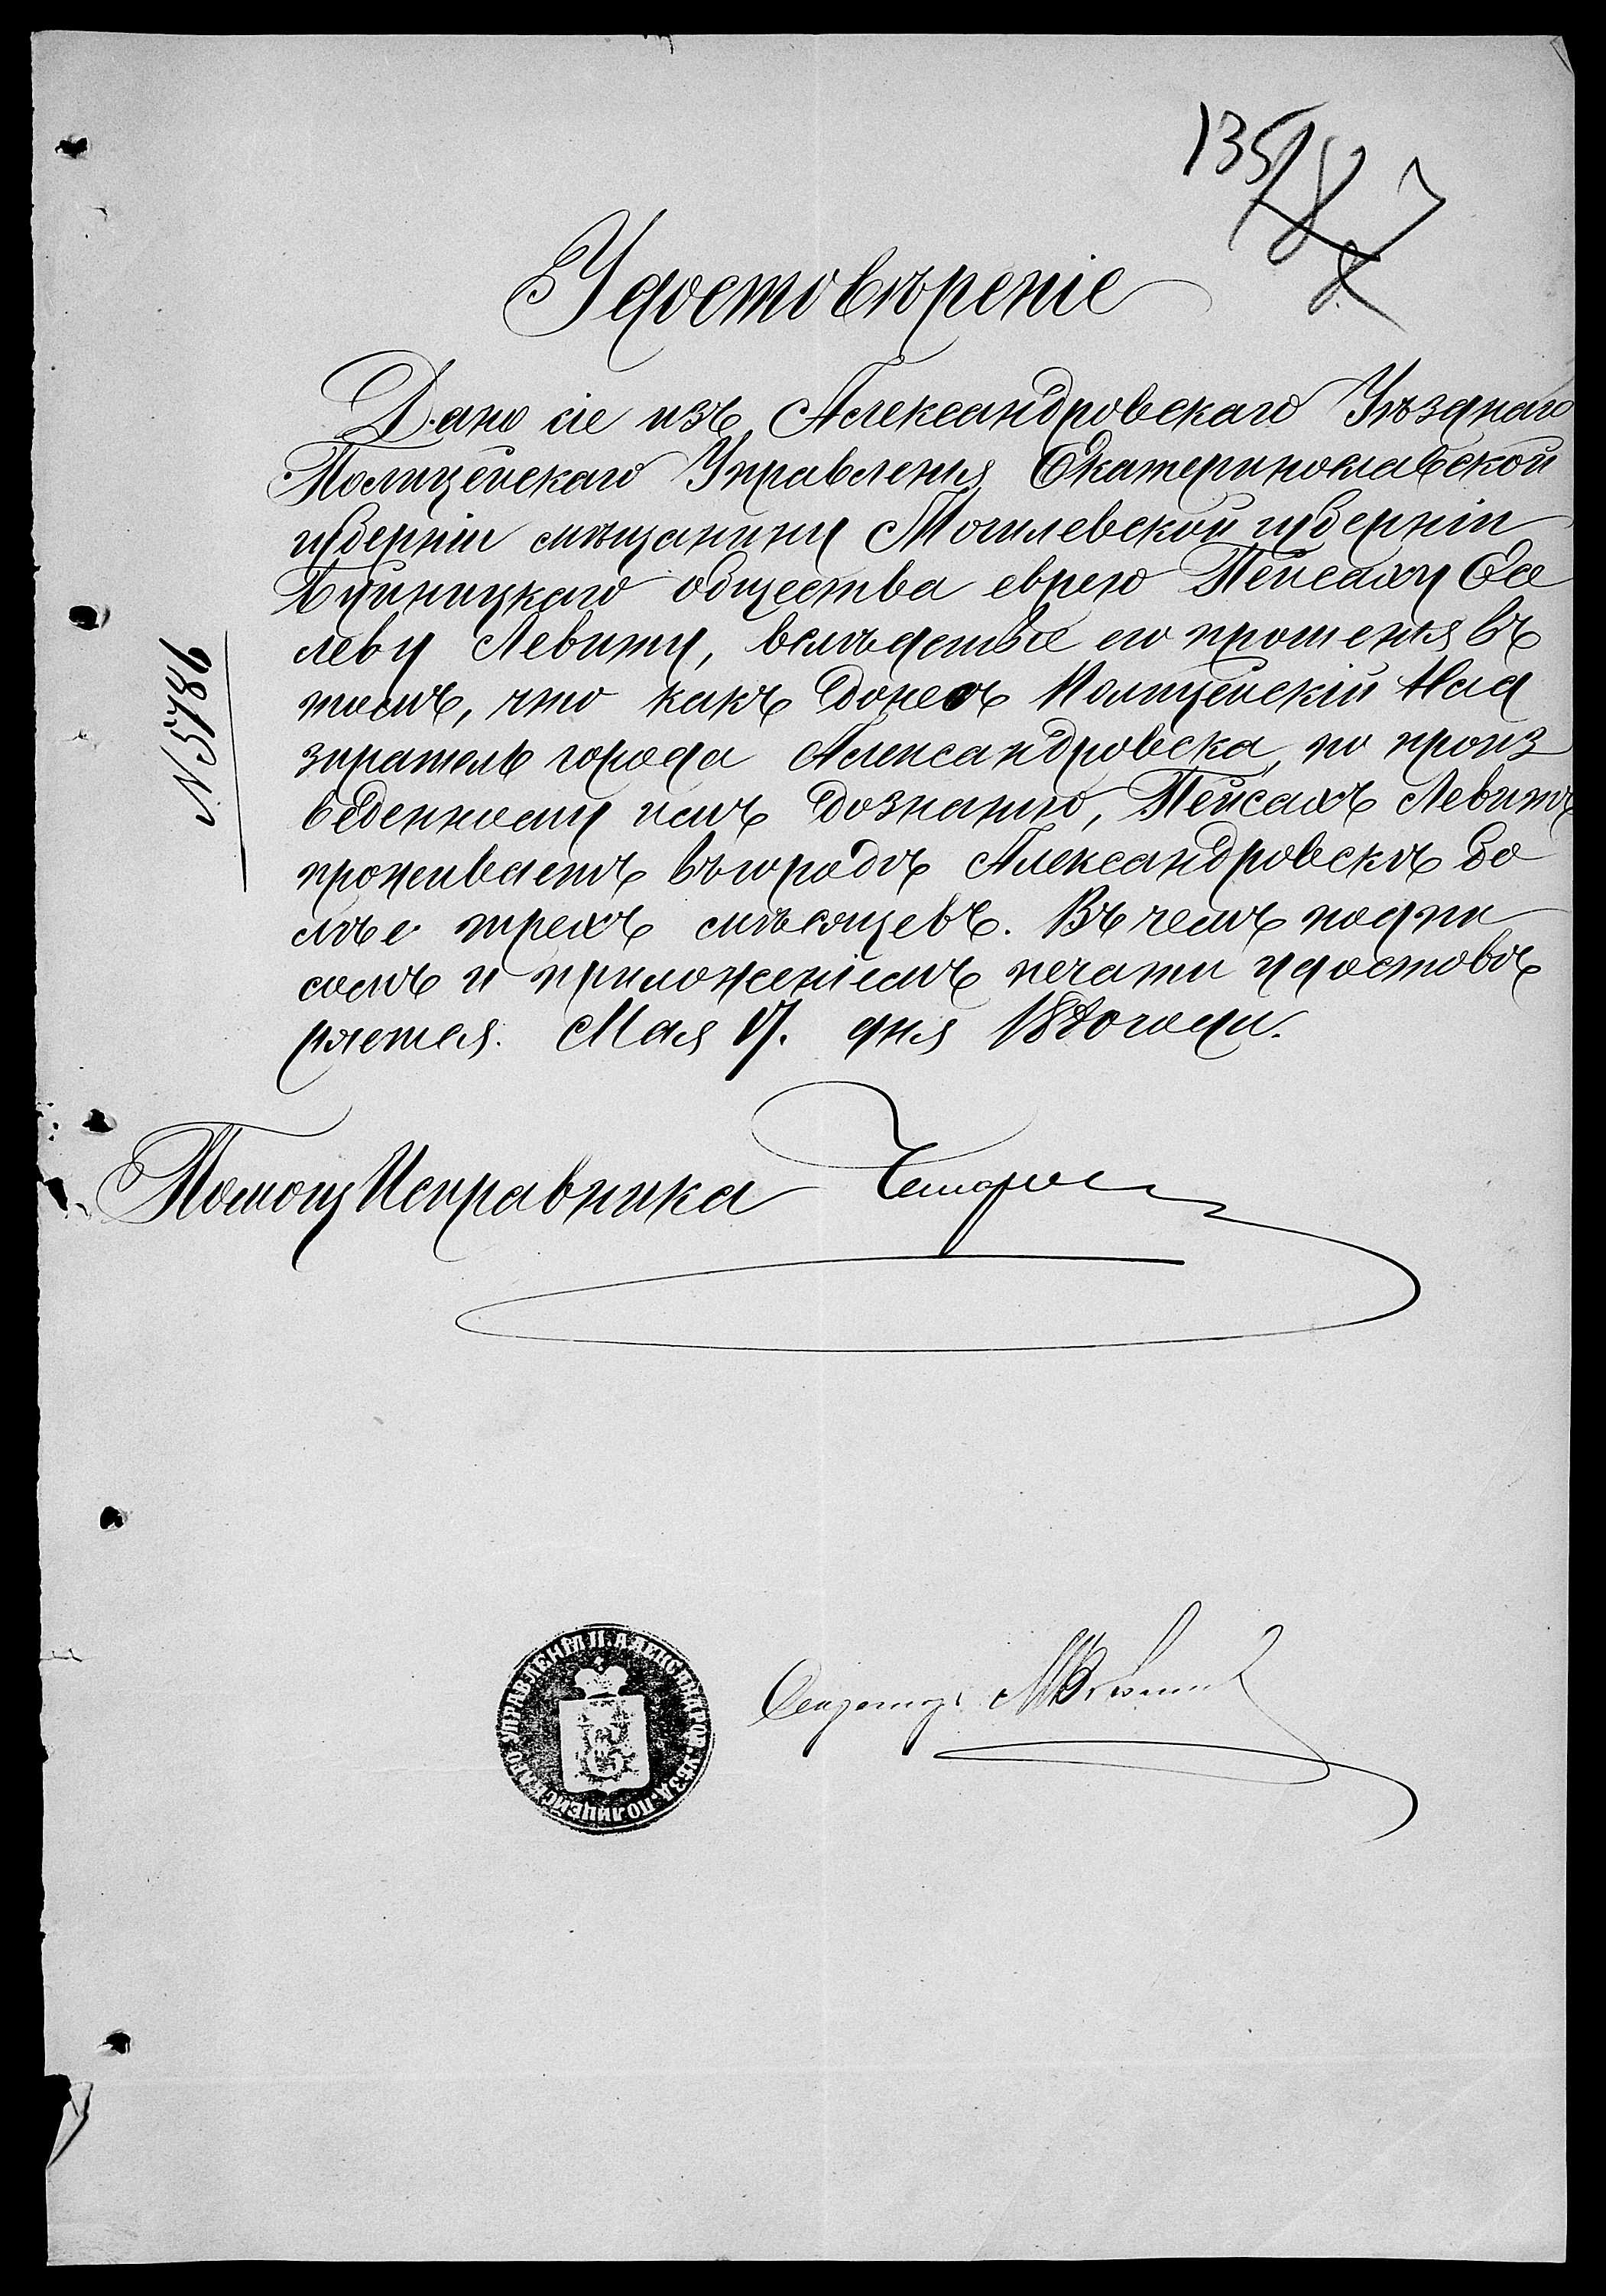 135
Удостовѣреніе
Дано сіе изъ Александровскаго Уѣзднаго
Полицейскаго Управленія Екатеринославской
губерніи мѣщанину Могилевской губерніи
общества еврею Пейсаху Есе
леву Левиту, вслѣдствіе его прошенія въ
томъ, что какъ донесъ Полицейскій Над
зиратель города Александровска, по произ
веденному имъ дознанію, Пейсахъ Левитъ
проживаетъ въ городѣ Александровскѣ бо
лѣе трехъ мѣсяцевъ. Въ чемъ подпи
сомъ и приложеніемъ печати удостовѣ
ряется. Мая 17. дня 1880 года.
N 5786
Помощ Исправника
АЛЕКСАНДРОВ. УѢЗД. ПОЛИЦЕЙСКАГО УПРАВЛЕНІЯ
Секретарь